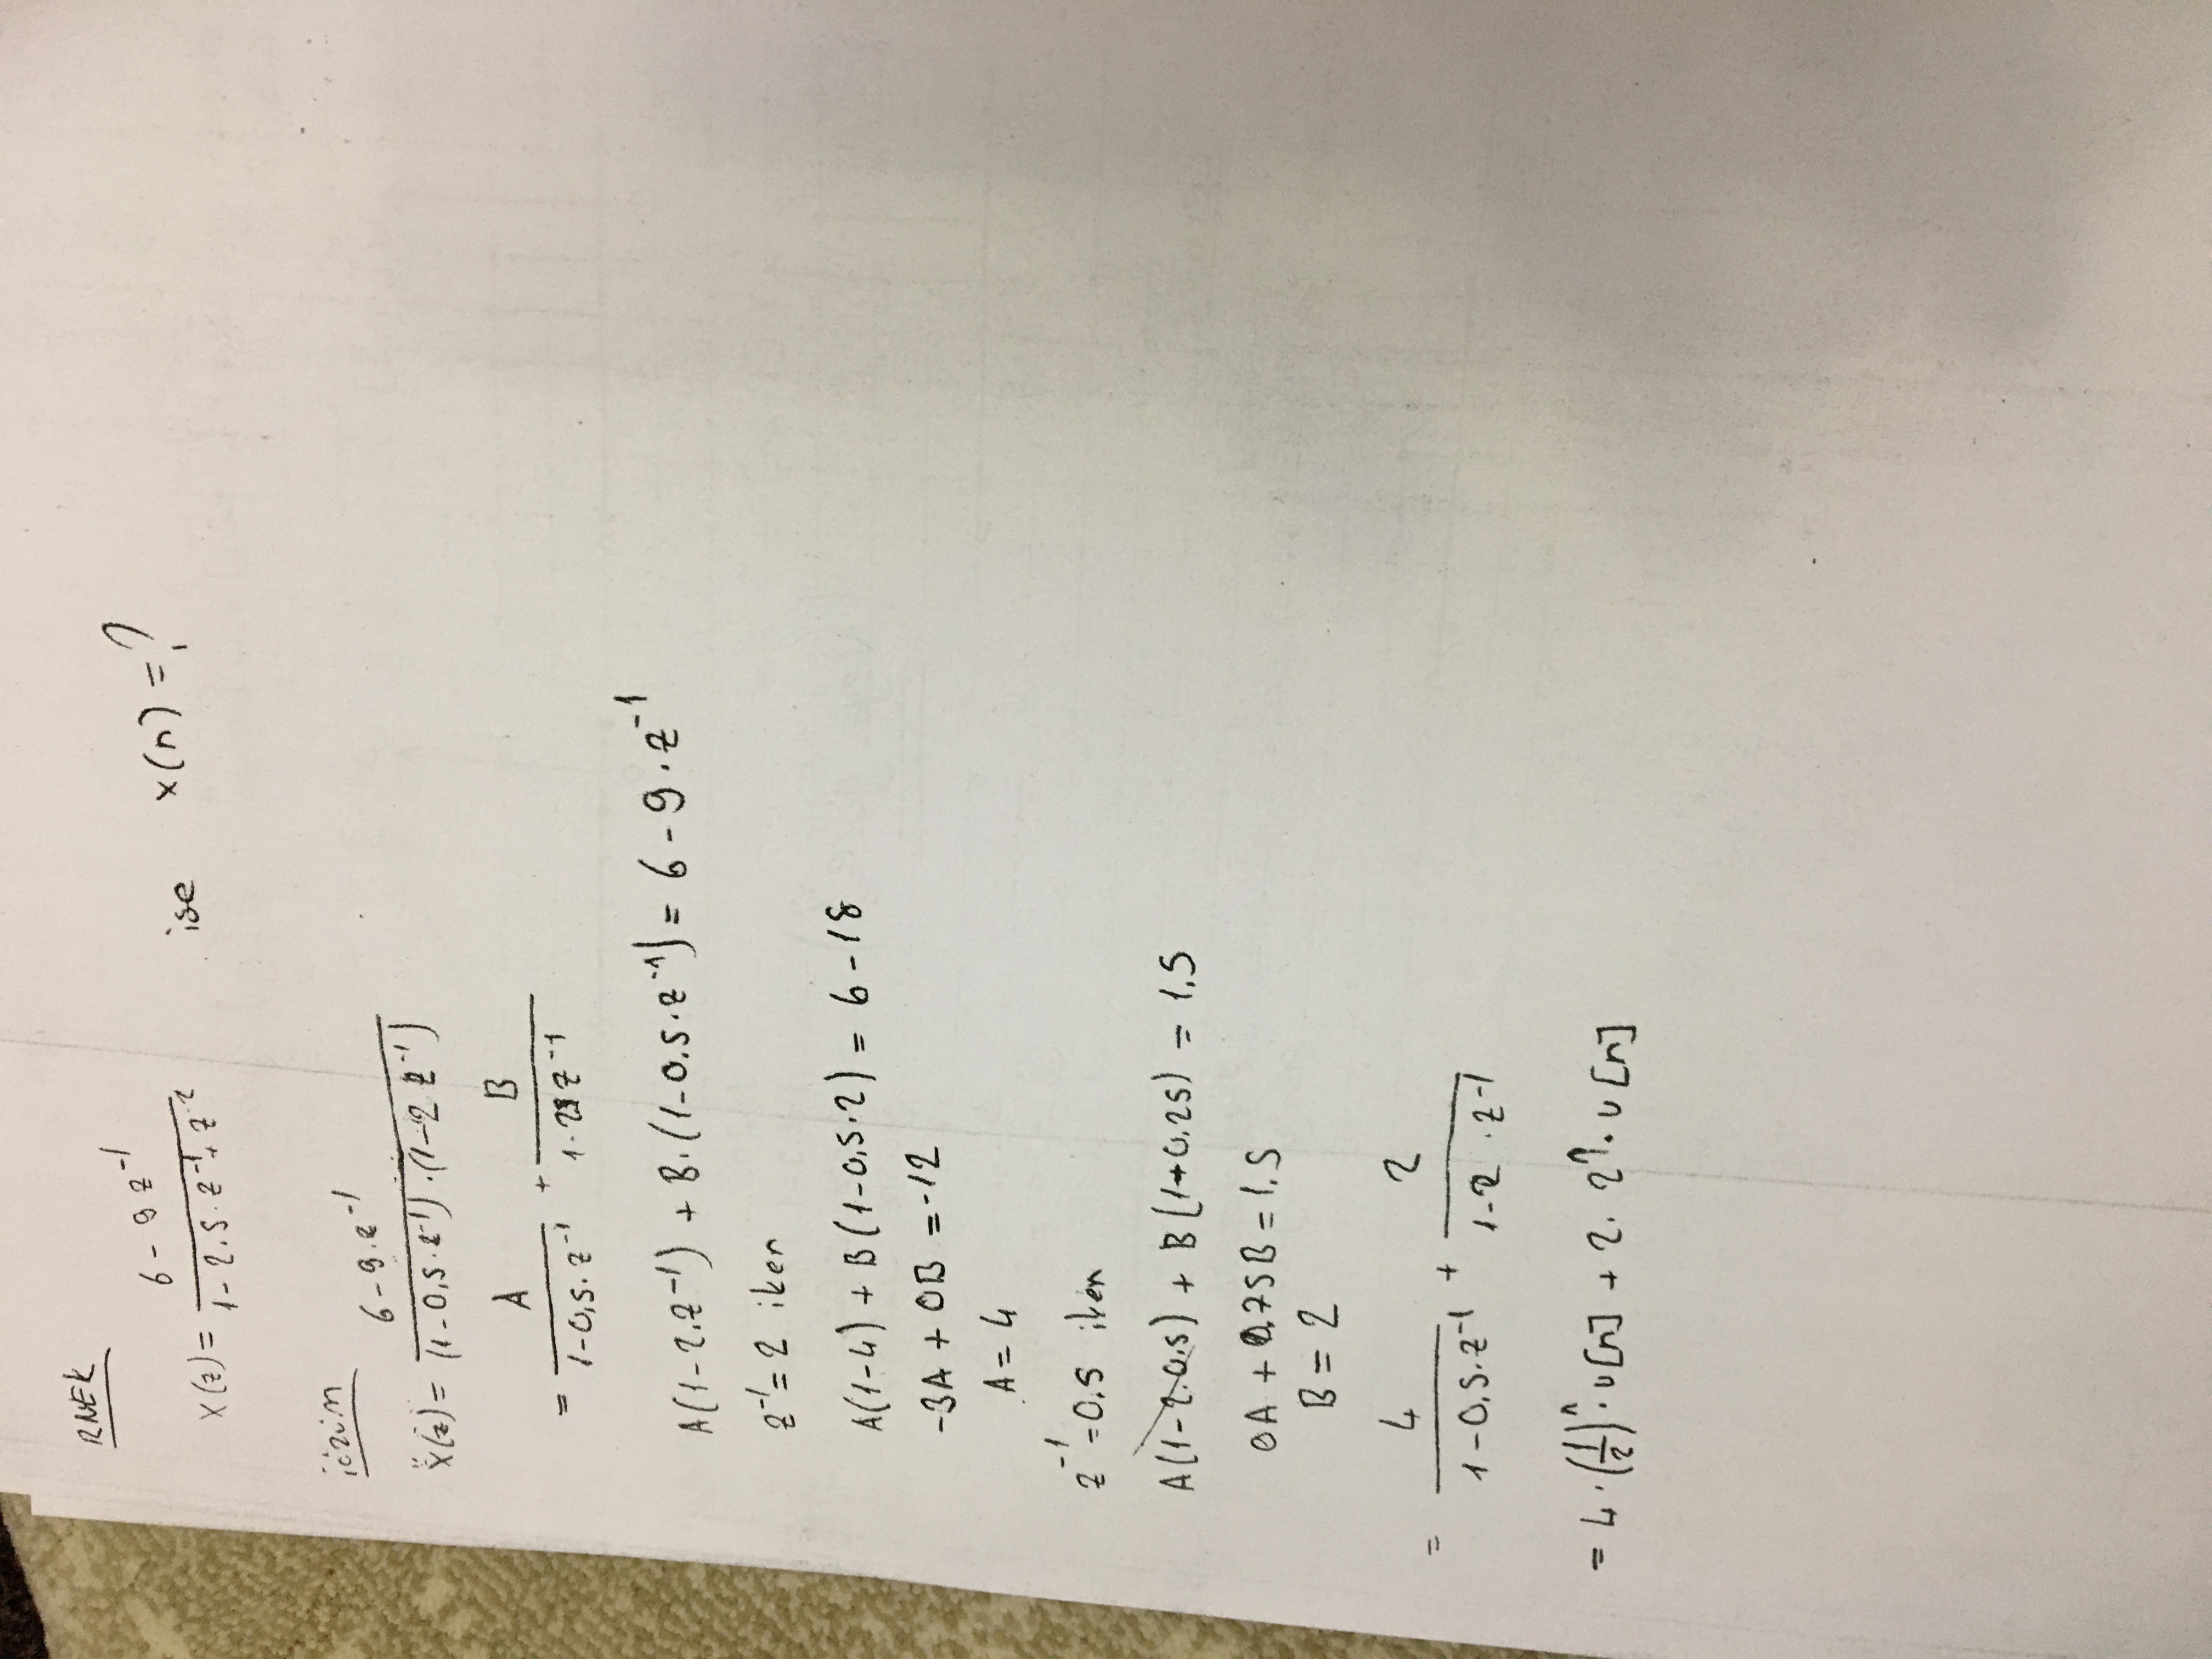 RNEK
x(z) = (6 - 9 z^-1) / (1 - 2.5 . z^-1 + z^-2) ise x(n) = ?
iözüm
x(z) = (6 - 9 . z^-1) / ((1 - 0,5 . z^-1) . (1 - 2 z^-1))
= A / (1 - 0,5 . z^-1) + B / (1 - 2 z^-1)
A(1 - 2 . z^-1) + B . (1 - 0.5 . z^-1) = 6 - 9 . z^-1
z^-1 = 2 iken
A(1 - 4) + B(1 - 0,5 . 2) = 6 - 18
-3A + 0B = -12
A = 4
z^-1 = 0.5 iken
A(1 - 2.0.5) + B(1 - 0.25) = 1.5
0A + 0.75B = 1.5
B = 2
= 4 / (1 - 0,5 . z^-1) + 2 / (1 - 2 . z^-1)
= 4 . (1/2)^n . u[n] + 2 . 2^n . u[n]